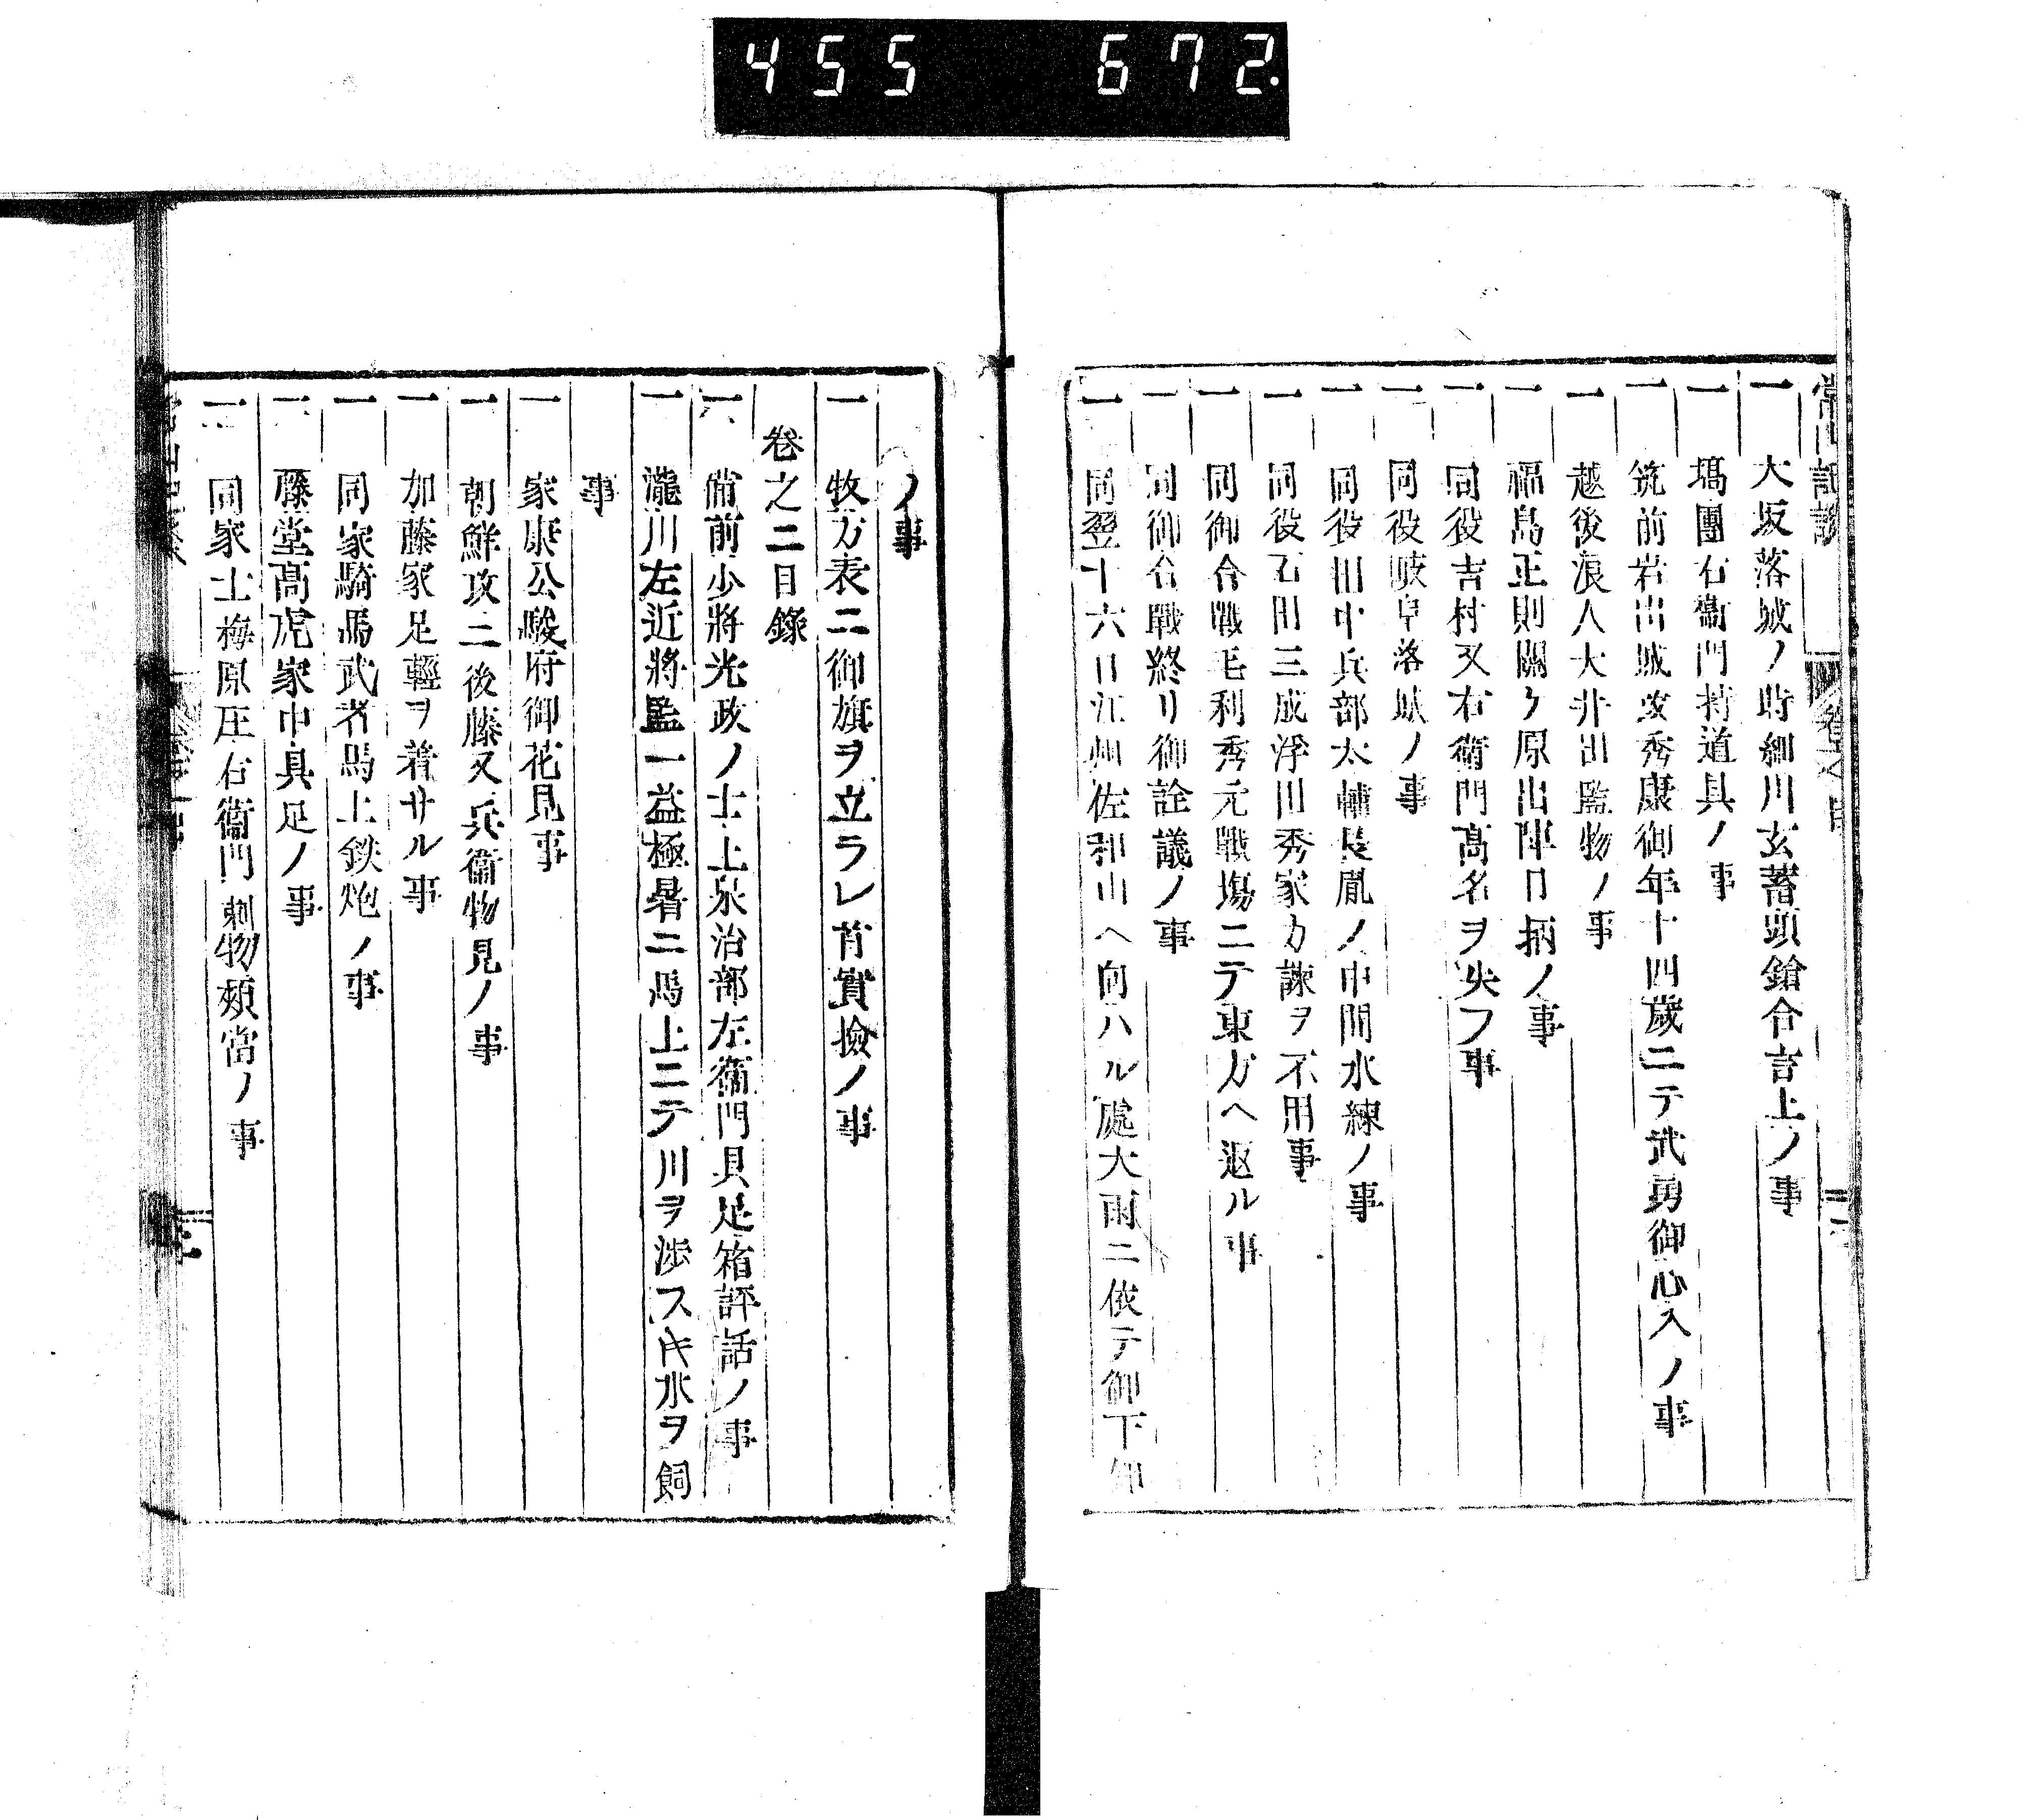 455 672.
一 大坂落城ノ時細川玄蕃頭鎗合吉上ノ事
一 塙團右衞門持道具ノ事
一 筑前岩出城攻秀康御年十四歲ニテ武勇御心入ノ事
一 越後浪人大井出監物ノ事
一 福島正則關ケ原出陣口柄ノ事
一 同役吉村又右衞門高名ヲ失フ事
一 同役岐阜落城ノ事
一 同役田中兵部太輔長胤ノ中間水練ノ事
一 同役石田三成浮田秀家カ諫ヲ不用事
一 同御合戰毛利秀元戰塲ニテ東方ヘ返ル事
一 同御合戰終リ御詮議ノ事
一 同翌十六日江州佐和山ヘ向ハル處大雨ニ依テ御下知
ノ事
一 牧方表ニ御旗ヲ立ラレ首實撿ノ事
卷之二目錄
一 備前少將光政ノ士上泉治部左衞門具足箱評話ノ事
一 瀧川左近將監一益極暑ニ馬上ニテ川ヲ涉スキ水ヲ飼
事
一 家康公駿府御花見事
一 朝鮮攻ニ後藤又兵衞物見ノ事
一 加藤家足輕ヲ着サル事
一 同家騎馬武者馬上鉄炮ノ事
一 藤堂高虎家中具足ノ事
一 同家士梅原庄右衞門刺物頬當ノ事